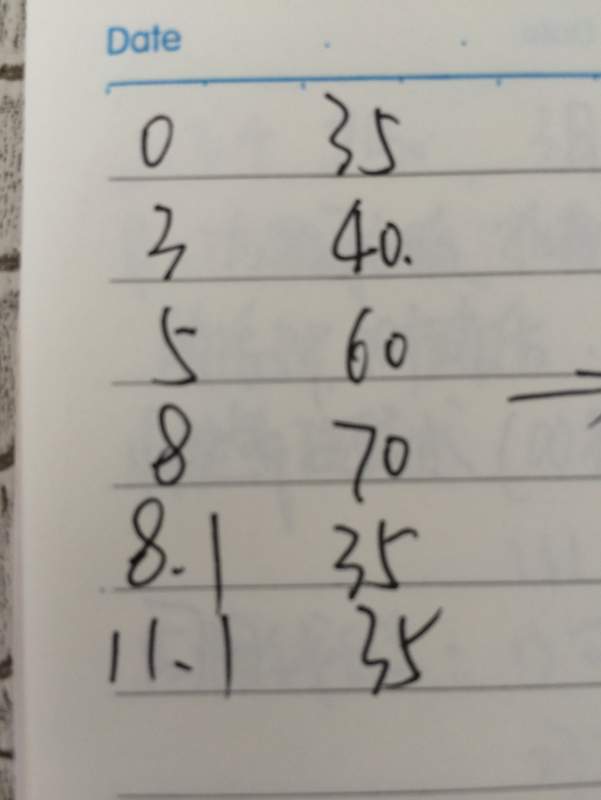 Date
0 35
3 40.
5 60
8 70
8.1 35
11.1 35